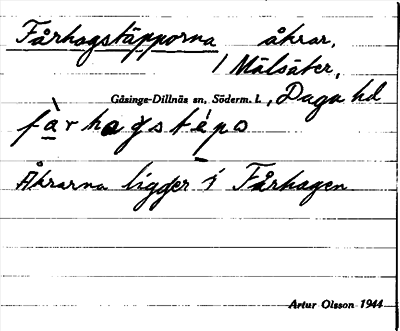 Fårhagstäpporna åkrar,
/ Mälsäter,
Gåsinge-Dillnäs sn, Söderm. l., Daga hd
fàrhagstépo
Åkrarna ligger i Fårhagen
Artur Olsson 1944